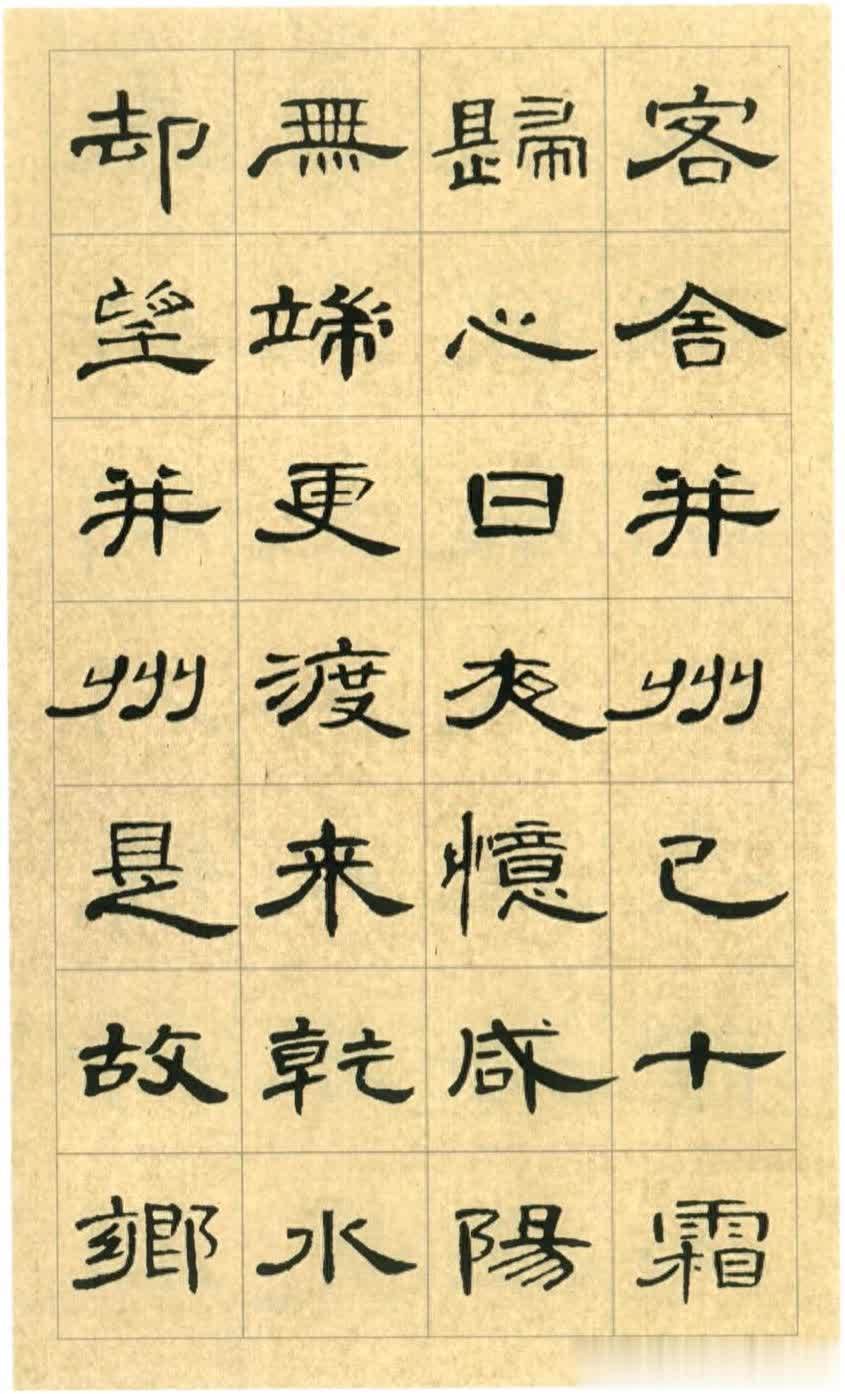 客舍并州已十霜
歸心日夜憶咸陽
無端更渡来乾水
却望并州是故鄉